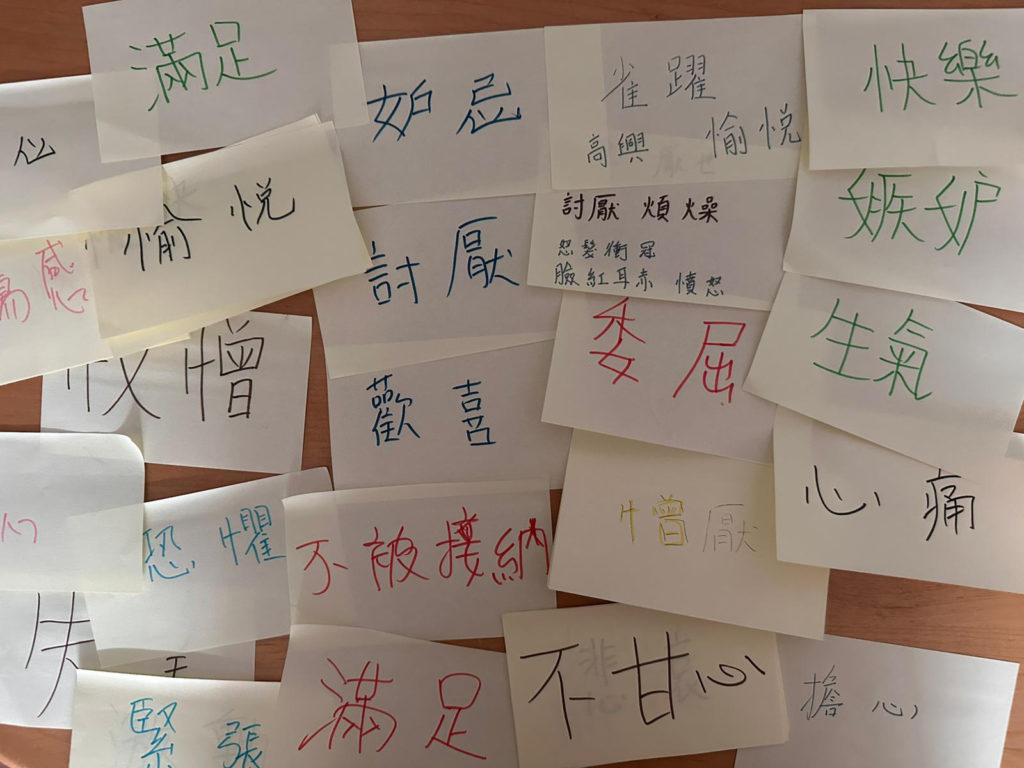 滿足
妒忌
雀躍
高興 愉悅
快樂
心
愉悅
討厭
討厭 煩燥
怒髮衝冠
臉紅耳赤 憤怒
嫉妒
傷感
憎
歡喜
委屈
生氣
心
恐懼
不被接納
憎厭
心痛
失
緊張
滿足
不甘心
擔心